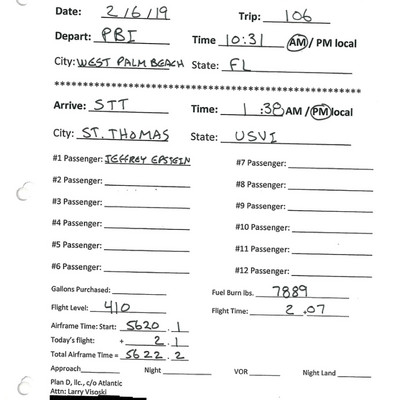 Date: 2/6/19 Trip: 106
Depart: PBI Time 10:31 AM / PM local
City: WEST PALM BEACH State: FL
************************************************
Arrive: STT Time: 1:38 AM / PM local
City: ST. THOMAS State: USVI
#1 Passenger: JEFFREY EPSTEIN #7 Passenger:
#2 Passenger: #8 Passenger:
#3 Passenger: #9 Passenger:
#4 Passenger: #10 Passenger:
#5 Passenger: #11 Passenger:
#6 Passenger: #12 Passenger:
Gallons Purchased: Fuel Burn lbs. 7889
Flight Level: 410 Flight Time: 2.07
Airframe Time: Start: 5620.1
Today's flight: + 2.1
Total Airframe Time = 5622.2
Approach Night VOR Night Land
Plan D, llc., c/o Atlantic
Attn: Larry Visoski